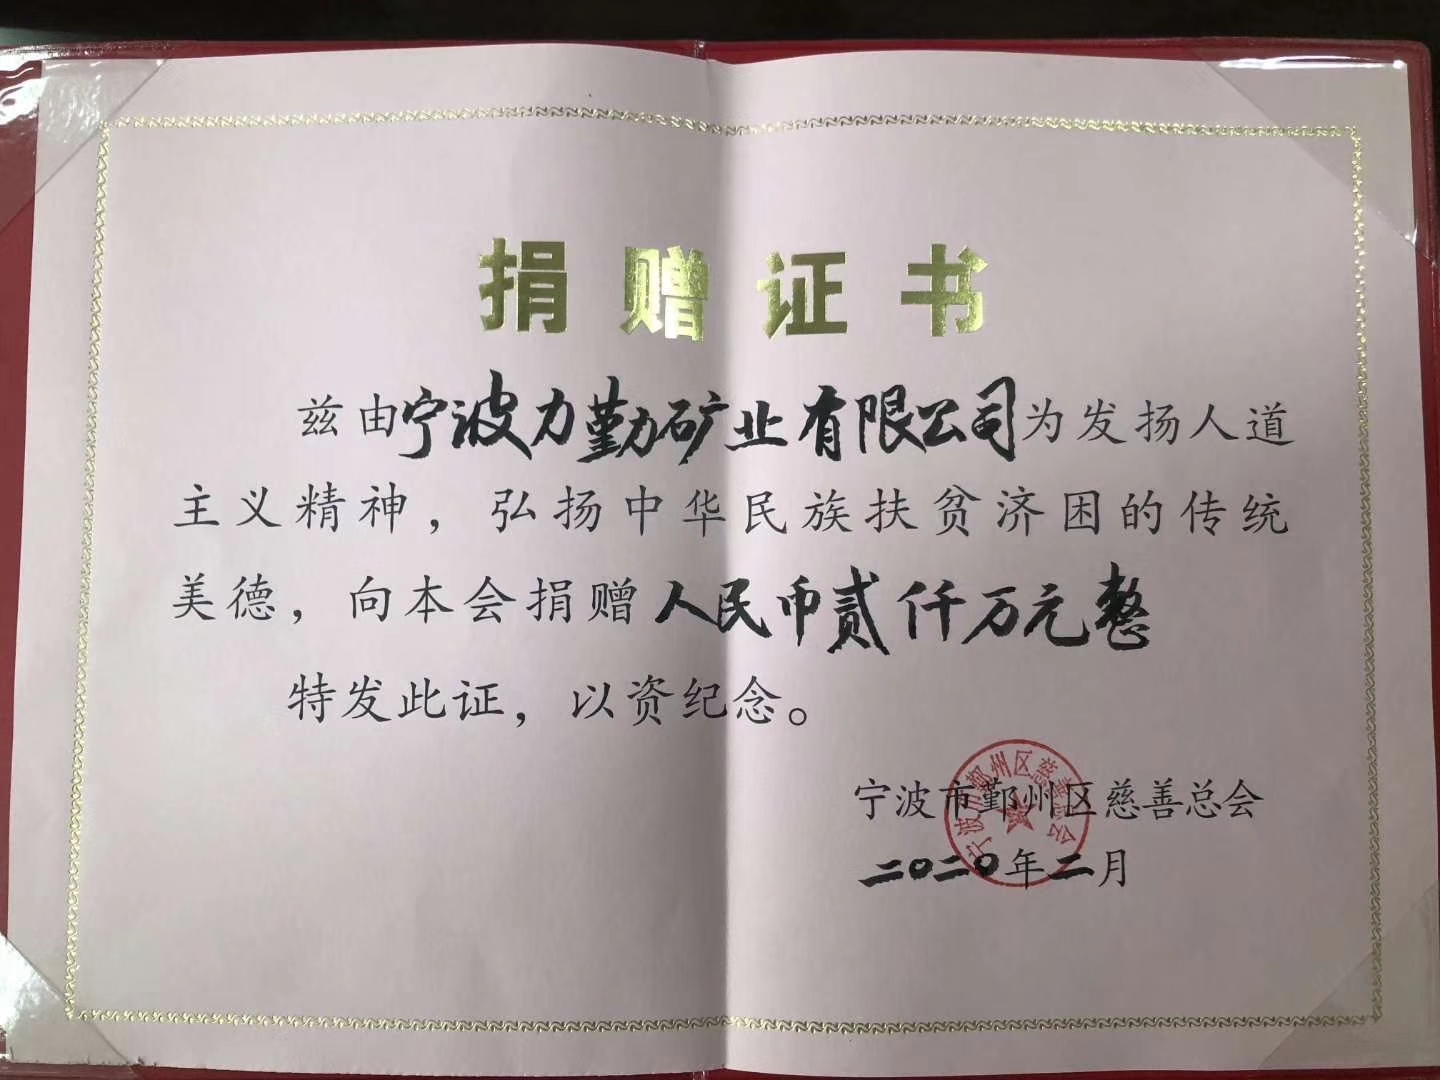 捐赠证书
兹由宁波力勤矿业有限公司为发扬人道
主义精神，弘扬中华民族扶贫济困的传统
美德，向本会捐赠人民币贰仟万元整
特发此证，以资纪念。
宁波市鄞州区慈善总会
二〇二〇年二月
宁波市鄞州区慈善总会